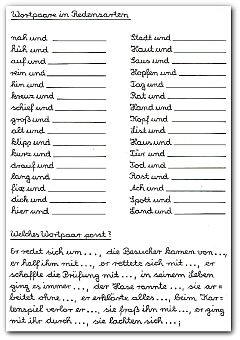 Wortpaare in Redensarten
nah und
Stadt und
hüh und
Haut und
auf und
Saus und
rein und
Hopfen und
hin und
Tag und
kreuz und
Rat und
schief und
Hand und
groß und
Kopf und
alt und
List und
klipp und
Haus und
kurz und
Tür und
drauf und
Tod und
lang und
Rast und
fix und
Ach und
dick und
Spott und
hier und
Land und
Welches Wortpaar passt?
Er redet sich um..., die Besucher kamen von...,
er half ihm mit..., er rettete sich mit..., er
schaffte die Prüfung mit..., in seinem Leben
ging es immer..., der Hase rannte..., sie ar=
beitet ohne..., er erklärte alles..., beim Kar=
tenspiel verlor er..., sie fraß ihn mit..., er ging
mit ihr durch..., sie lachten sich...;